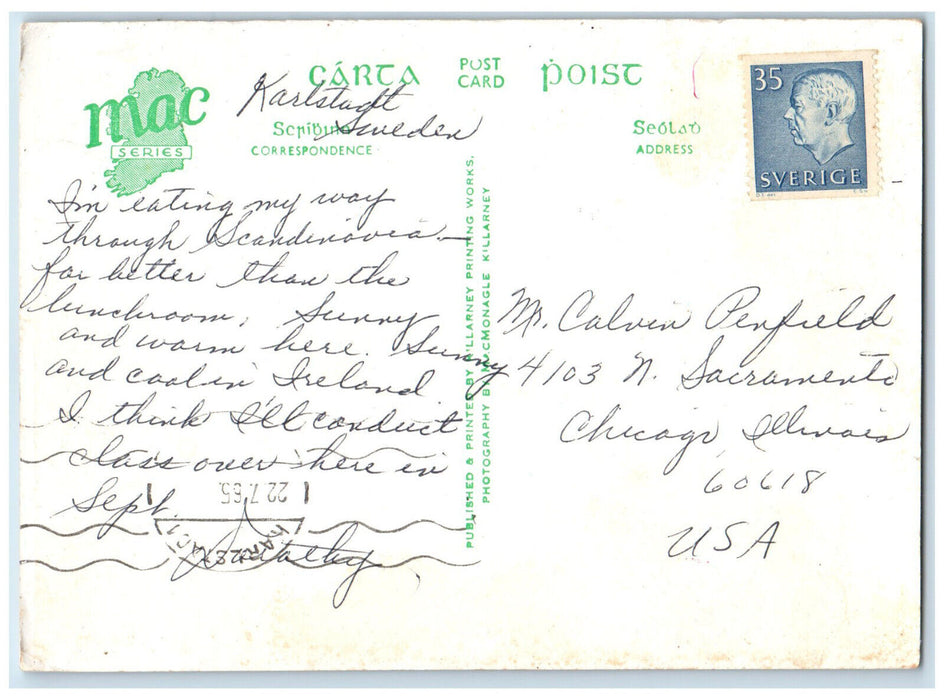 mac
SERIES
CÁRTA
POST
CARD
ṗoisc
Karlstadt
Sweden
Scríḃinn
CORRESPONDENCE
Seolaḋ
ADDRESS
35
SVERIGE
I'm eating my way
through Scandinavia —
far better than the
lunchroom. Sunny
and warm here. Sunny
and cool in Ireland.
I think I'll conduct
class over here in
Sept.
22.7.65
PUBLISHED & PRINTED BY KILLARNEY PRINTING WORKS.
PHOTOGRAPHY BY MACMONAGLE KILLARNEY
Mr. Calvin Penfield
4103 N. Sacramento
Chicago, Illinois
60618
USA